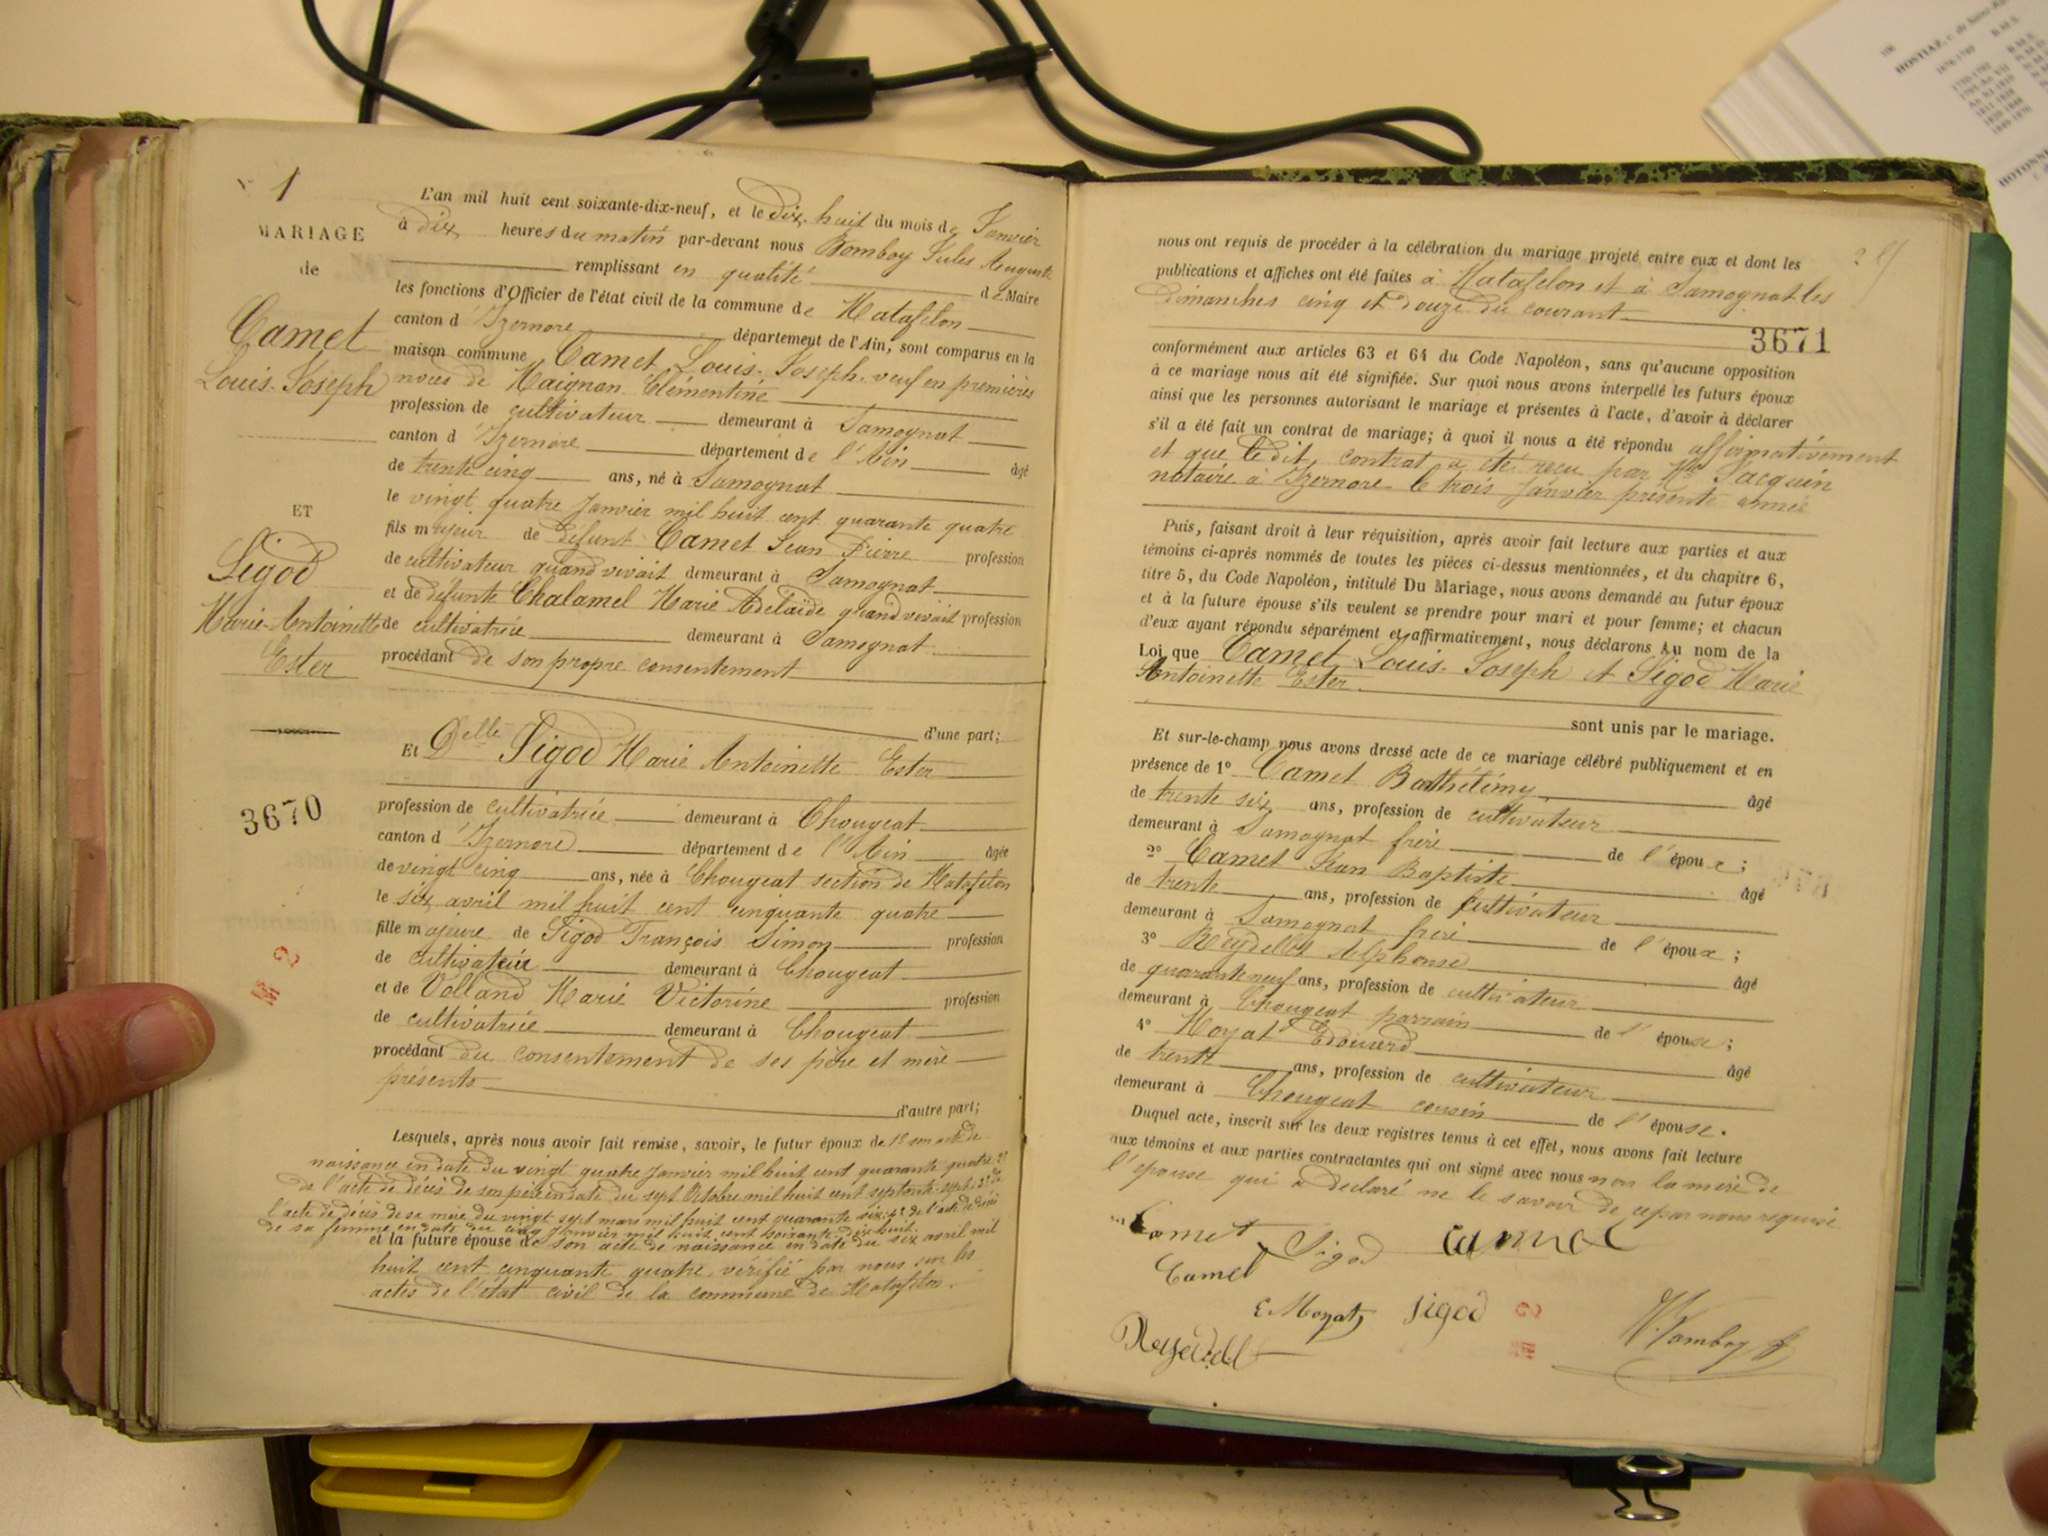 N° 1
MARIAGE
de
Camet
Louis-Joseph
ET
Sigod
Marie-Antoinette
Ester
3670
M 2
L'an mil huit cent soixante-dix-neuf, et le dix-huit du mois de Janvier
à dix heures du matin par-devant nous Bomboy Jules Auguste
remplissant en qualité de Maire
les fonctions d'Officier de l'état civil de la commune de Matafelon
canton d'Izernore département de l'Ain, sont comparus en la
maison commune Camet Louis-Joseph, veuf en premières
noces de Maignan Clémentine
profession de cultivateur demeurant à Samognat
canton d'Izernore département de l'Ain âgé
de trente cinq ans, né à Samognat
le vingt quatre Janvier mil huit cent quarante quatre
fils majeur de défunt Camet Jean Pierre profession
de cultivateur quand vivait demeurant à Samognat
et de défunte Chalamel Marie Adélaïde quand vivait profession
de cultivatrice demeurant à Samognat
procédant de son propre consentement
d'une part;
Et Delle Sigod Marie Antoinette Ester
profession de cultivatrice demeurant à Chougeat
canton d'Izernore département de l'Ain âgée
de vingt cinq ans, née à Chougeat section de Matafelon
le six avril mil huit cent cinquante quatre
fille majeure de Sigod François Simon profession
de cultivateur demeurant à Chougeat
et de Volland Marie Victorine profession
de cultivatrice demeurant à Chougeat
procédant du consentement de ses père et mère
présents
d'autre part;
Lesquels, après nous avoir fait remise, savoir, le futur époux de 1° son acte de
naissance en date du vingt quatre Janvier mil huit cent quarante quatre 2°
de l'acte de décès de son père en date du sept Octobre mil huit cent septante-sept 3° de
l'acte de décès de sa mère du vingt sept mars mil huit cent quarante six; 4° de l'acte de décès
de sa femme, en date du cinq Janvier mil huit cent soixante-dix huit.
et la future épouse de son acte de naissance en date du six avril mil
huit cent cinquante quatre, vérifié par nous sur les
actes de l'état civil de la commune de Matafelon.
nous ont requis de procéder à la célébration du mariage projeté entre eux et dont les
publications et affiches ont été faites à Matafelon et à Samognat les
dimanches cinq et douze du courant
3671
conformément aux articles 63 et 64 du Code Napoléon, sans qu'aucune opposition
à ce mariage nous ait été signifiée. Sur quoi nous avons interpellé les futurs époux
ainsi que les personnes autorisant le mariage et présentes à l'acte, d'avoir à déclarer
s'il a été fait un contrat de mariage; à quoi il nous a été répondu affirmativement
et que ledit contrat a été reçu par Me Jacquin
notaire à Izernore le trois Janvier présente année
Puis, faisant droit à leur réquisition, après avoir fait lecture aux parties et aux
témoins ci-après nommés de toutes les pièces ci-dessus mentionnées, et du chapitre 6,
titre 5, du Code Napoléon, intitulé Du Mariage, nous avons demandé au futur époux
et à la future épouse s'ils veulent se prendre pour mari et pour femme; et chacun
d'eux ayant répondu séparément et affirmativement, nous déclarons Au nom de la
Loi que Camet Louis-Joseph et Sigod Marie
Antoinette Ester
sont unis par le mariage.
Et sur-le-champ nous avons dressé acte de ce mariage célébré publiquement et en
présence de 1° Camet Barthélémy âgé
de trente six ans, profession de cultivateur
demeurant à Samognat frère de l'époux;
2° Camet Jean Baptiste âgé
de trente ans, profession de cultivateur
demeurant à Samognat frère de l'époux;
3° Reydellet Alphonse âgé
de quarante neuf ans, profession de cultivateur
demeurant à Chougeat parrain de l'épouse;
4° Moyat Edouard âgé
de trente ans, profession de cultivateur
demeurant à Chougeat cousin de l'épouse.
Duquel acte, inscrit sur les deux registres tenus à cet effet, nous avons fait lecture
aux témoins et aux parties contractantes qui ont signé avec nous non la mère de
l'épouse qui a déclaré ne le savoir de ce par nous requise
Camet Sigod Camet
Camet
E Moyat Sigod
Reydellet
Bomboy
M 2
HOSTIAZ